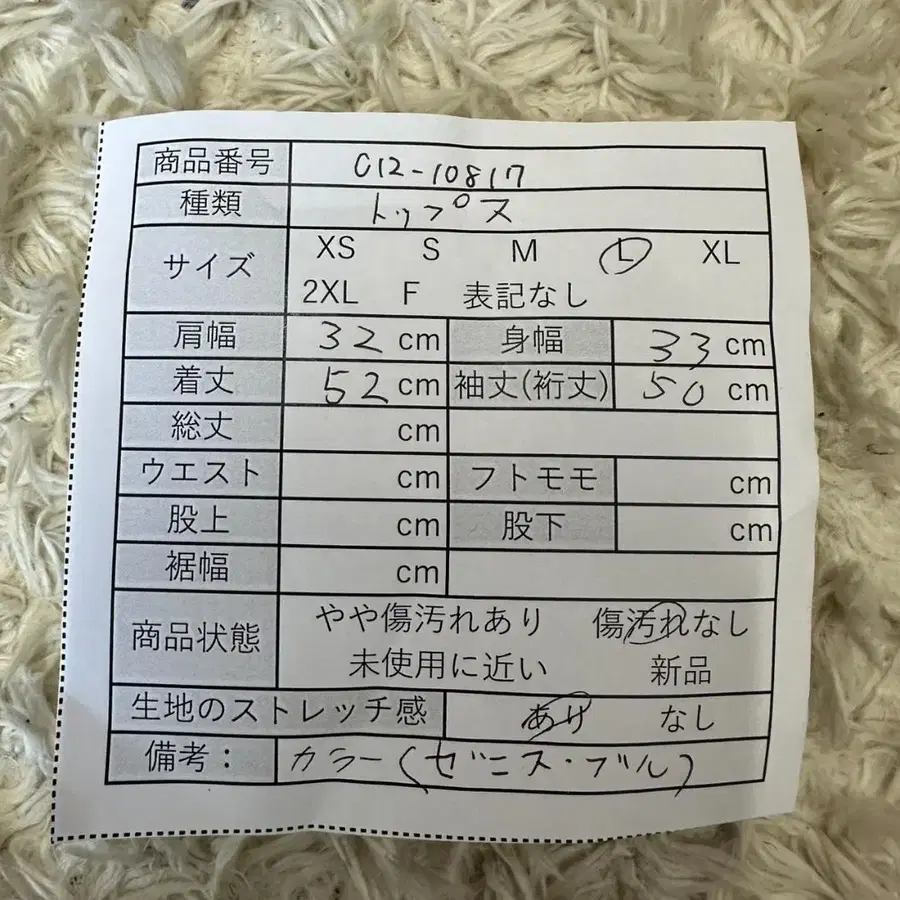 商品番号 C12-10817
種類 トップス
サイズ XS S M L XL
2XL F 表記なし
肩幅 32 cm 身幅 33 cm
着丈 52 cm 袖丈(裄丈) 50 cm
総丈 cm
ウエスト cm フトモモ cm
股上 cm 股下 cm
裾幅 cm
商品状態 やや傷汚れあり 傷汚れなし
未使用に近い 新品
生地のストレッチ感 あり なし
備考: カラー(ゼニス・ブル)